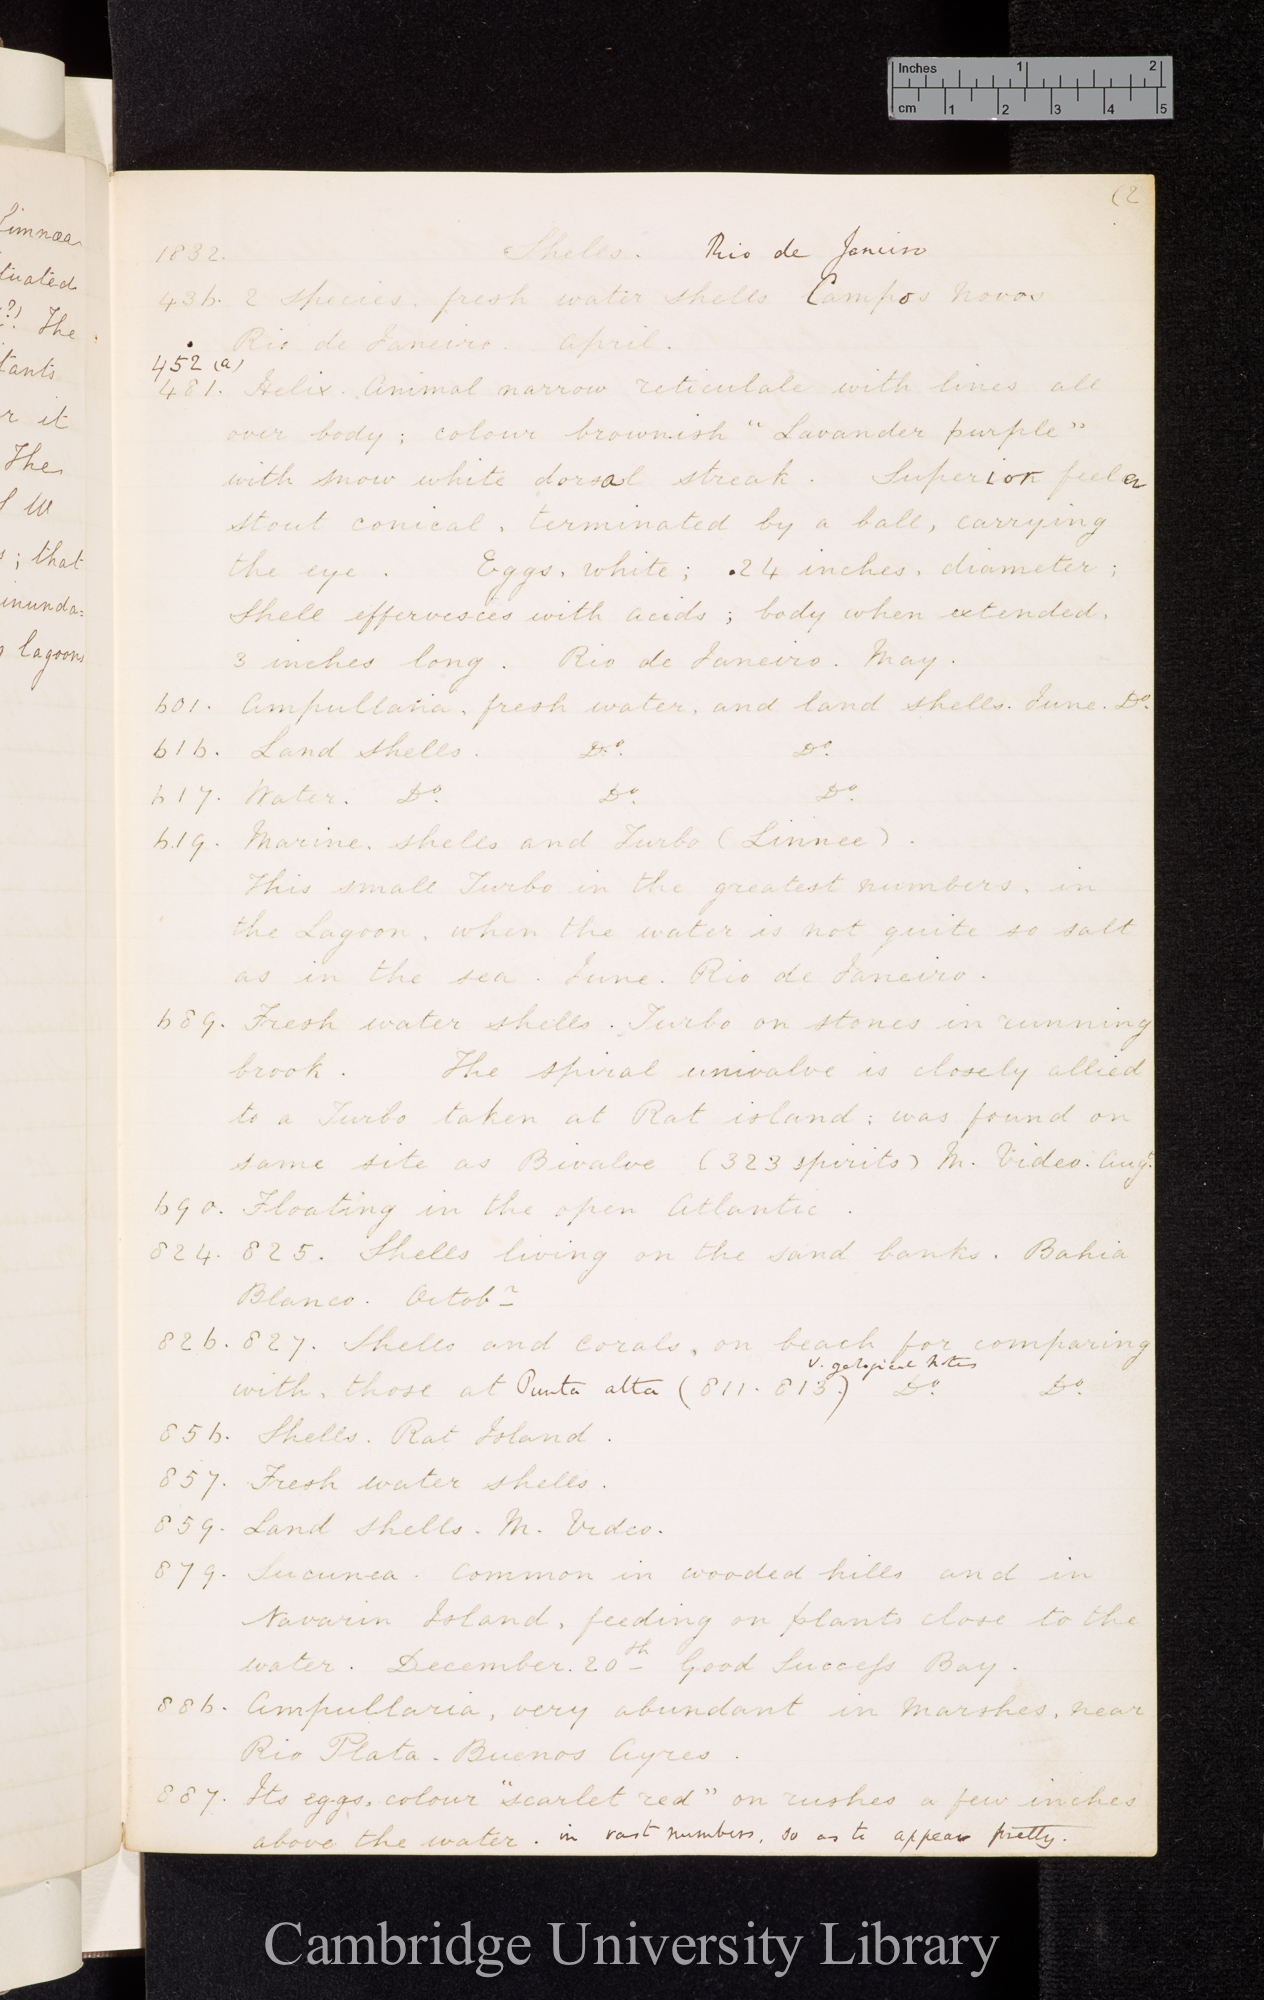 (2
1832. Shells. Rio de Janeiro
436. 2 species. fresh water shells Campos Novos
Rio de Janeiro. April.
452 (a)
481. Helix. Animal narrow reticulate with lines all
over body; colour brownish "Lavander purple"
with snow white dorsal streak. Superior feeler
stout conical, terminated by a ball, carrying
the eye. Eggs, white; .24 inches, diameter;
Shell effervesces with acids; body when extended,
3 inches long. Rio de Janeiro. May.
601. Ampullaria, fresh water, and land shells. June. Do.
616. Land shells. Do. Do.
617. Water. Do. Do. Do.
619. Marine, shells and Turbo (Linnee).
This small Turbo in the greatest numbers, in
the Lagoon, when the water is not quite so salt
as in the sea. June. Rio de Janeiro.
689. Fresh water shells. Turbo on stones in running
brook. The spiral univalve is closely allied
to a Turbo taken at Rat island; was found on
same site as Bivalve (323 spirits) M. Video. Augt.
690. Floating in the open Atlantic.
824. 825. Shells living on the sand banks. Bahia
Blanco. Octobr
826. 827. Shells and corals, on beach for comparing
V. geological Notes
with, those at Punta alta (811. 813.) Do. Do.
856. Shells. Rat Island.
857. Fresh water shells.
859. Land shells. M. Video.
879. Sucunea. Common in wooded hills and in
Navarin Island, feeding on plants close to the
water. December. 20th Good Success Bay.
886. Ampullaria, very abundant in Marshes, near
Rio Plata. Buenos Ayres.
887. Its eggs, colour "scarlet red" on rushes a few inches
above the water. in vast numbers, so as to appear pretty.
Limnæa
tuated
?! The
tants
r it
The
; that
inunda=
lagoons
Inches 1 2
cm 1 2 3 4 5
Cambridge University Library